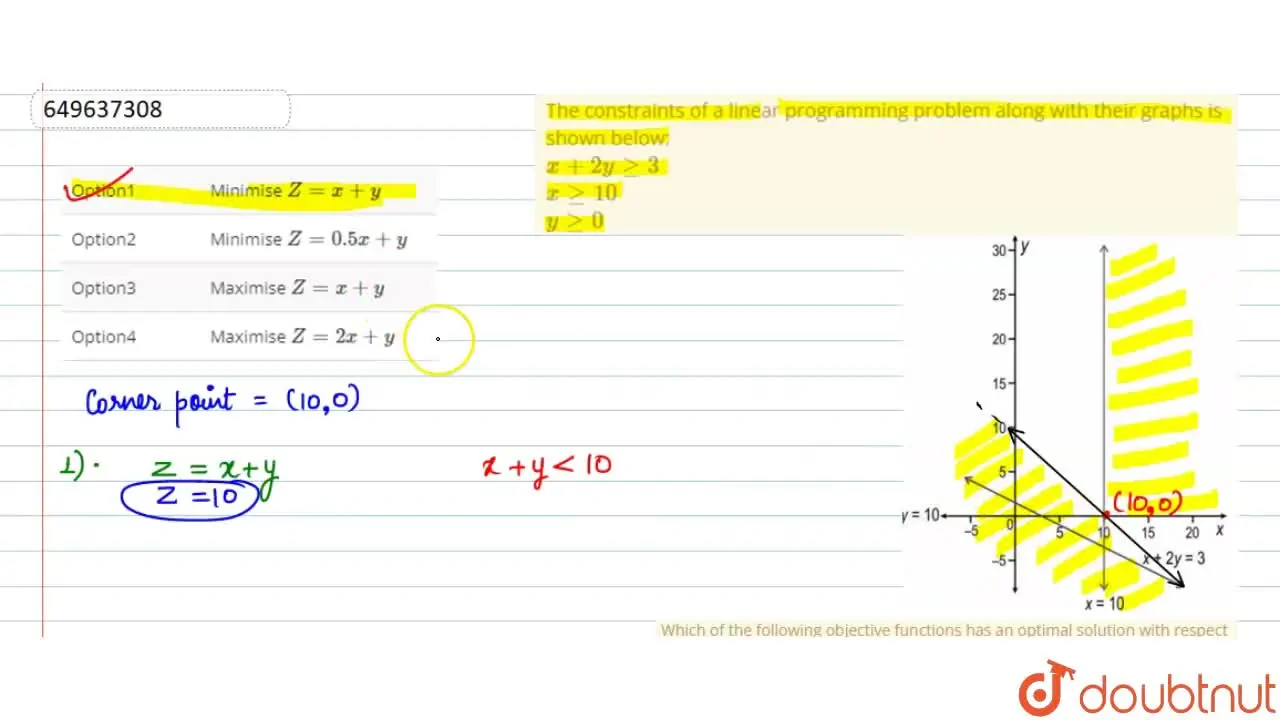 649637308
The constraints of a linear programming problem along with their graphs is
shown below:
x + 2y ≥ 3
x ≥ 10
y ≥ 0
Option1 Minimise Z = x + y
Option2 Minimise Z = 0.5x + y
Option3 Maximise Z = x + y
Option4 Maximise Z = 2x + y
Corner point = (10,0)
1). Z = x+y
Z = 10
x + y < 10
30 y
25
20
15
10
5
(10,0)
y = 10 -5 0 5 10 15 20 x
-5 x + 2y = 3
x = 10
Which of the following objective functions has an optimal solution with respect
doubtnut